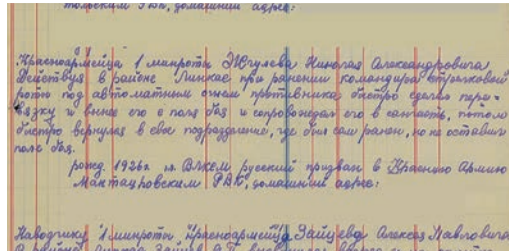 РВК, домашний адрес:
Красноармейца 1 минроты Жгулева Николая Александровича
Действуя в районе Линкас при ранении командира стрелковой
роты под автоматным огнем противника быстро сделал пере-
вязку и вынес его с поля боя и сопроводил его в санчасть, потом
быстро вернулся в свое подразделение, где был сам ранен, но не оставил
поле боя.
рожд. 1926г. чл. ВЛКСМ русский призван в Красную Армию
РВК, домашний адрес:
Наводчику 1 минроты красноармейца Зайцева Алексея Павловича